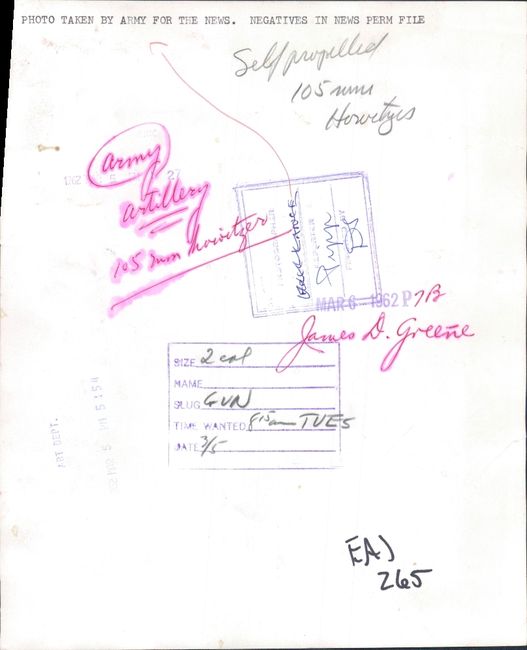 PHOTO TAKEN BY ARMY FOR THE NEWS. NEGATIVES IN NEWS PERM FILE
Self propelled
105 mm
Howitzers
army
artillery
105 mm howitzer
MAR 6 - 1962 P 7B
James D. Greene
SIZE 2 col
NAME
SLUG GUN
TIME WANTED 8 15am TUES
DATE 3/5
ART DEPT.
EAJ
265